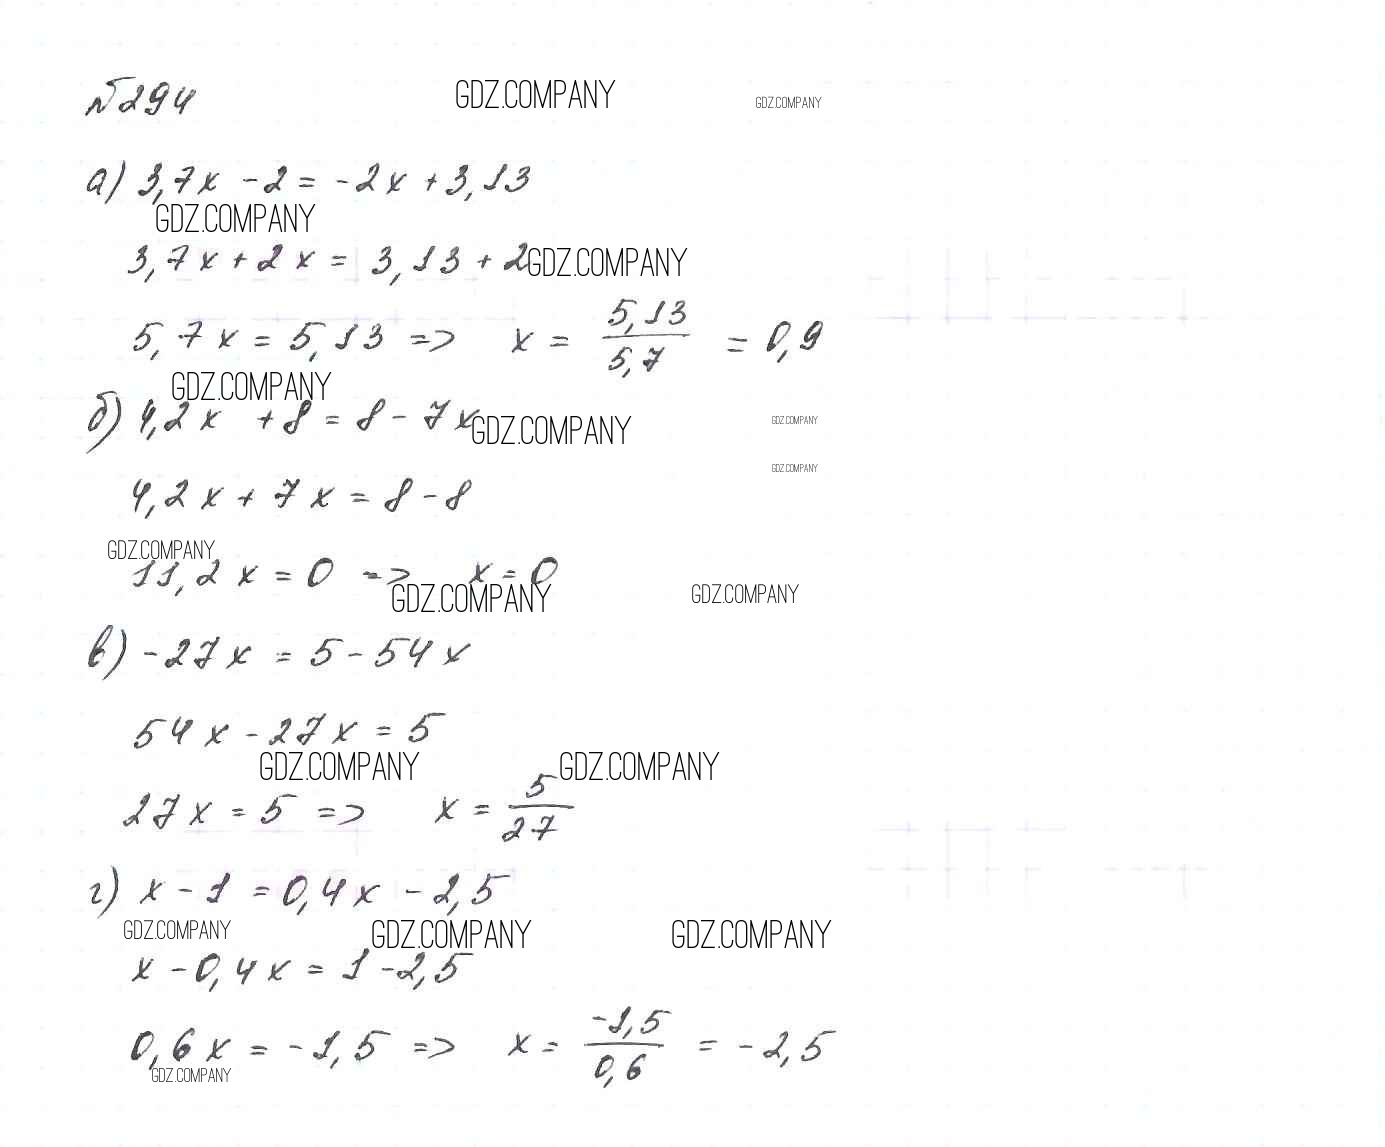 №294 GDZ.COMPANY GDZ.COMPANY
а) 3,7x - 2 = -2x + 3,13
GDZ.COMPANY
3,7x + 2x = 3,13 + 2 GDZ.COMPANY
5,7x = 5,13 => x = 5,13/5,7 = 0,9
GDZ.COMPANY
б) 4,2x + 8 = 8 - 7x GDZ.COMPANY GDZ.COMPANY
GDZ.COMPANY
4,2x + 7x = 8 - 8
GDZ.COMPANY
11,2x = 0 => x = 0
GDZ.COMPANY GDZ.COMPANY
в) -27x = 5 - 54x
54x - 27x = 5
GDZ.COMPANY GDZ.COMPANY
27x = 5 => x = 5/27
г) x - 1 = 0,4x - 2,5
GDZ.COMPANY GDZ.COMPANY GDZ.COMPANY
x - 0,4x = 1 - 2,5
0,6x = -1,5 => x = -1,5/0,6 = -2,5
GDZ.COMPANY